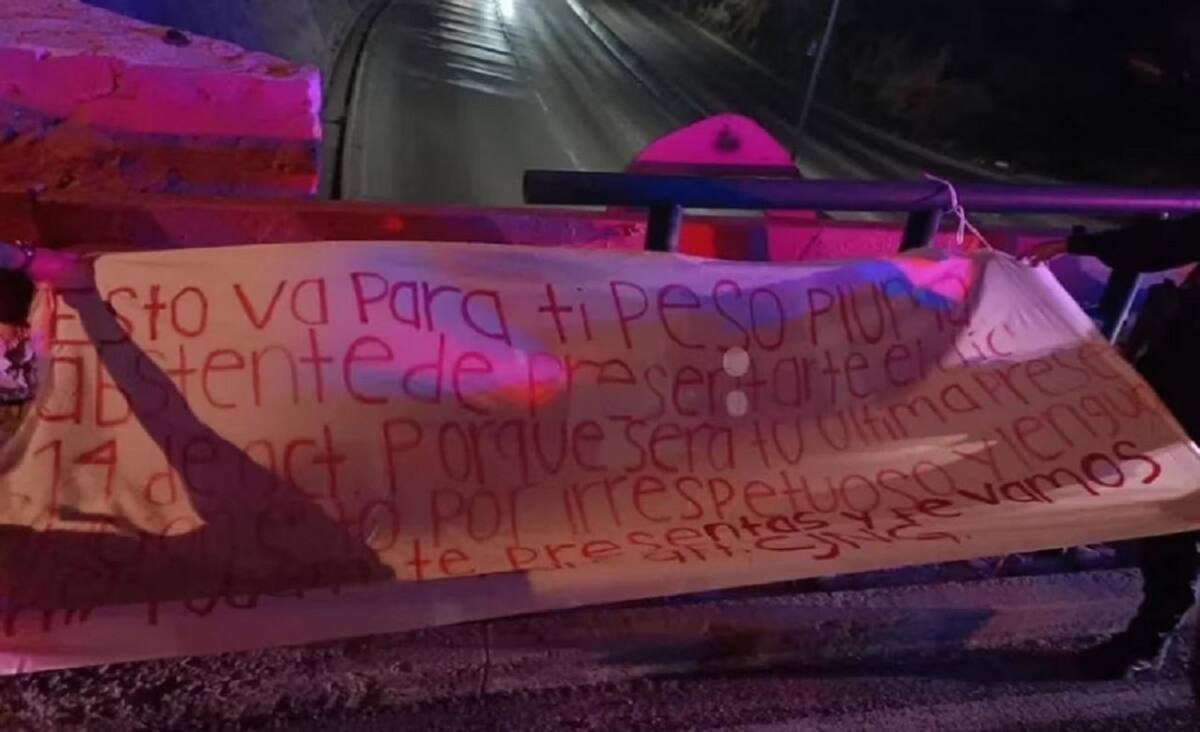 Esto va Para ti Peso Pluma
abstente de presentarte el dic
14 de oct. Porque sera tu Ultima Prese
Por irrespetuoso y lengu
te. Presentas y te vamos
CJNG.